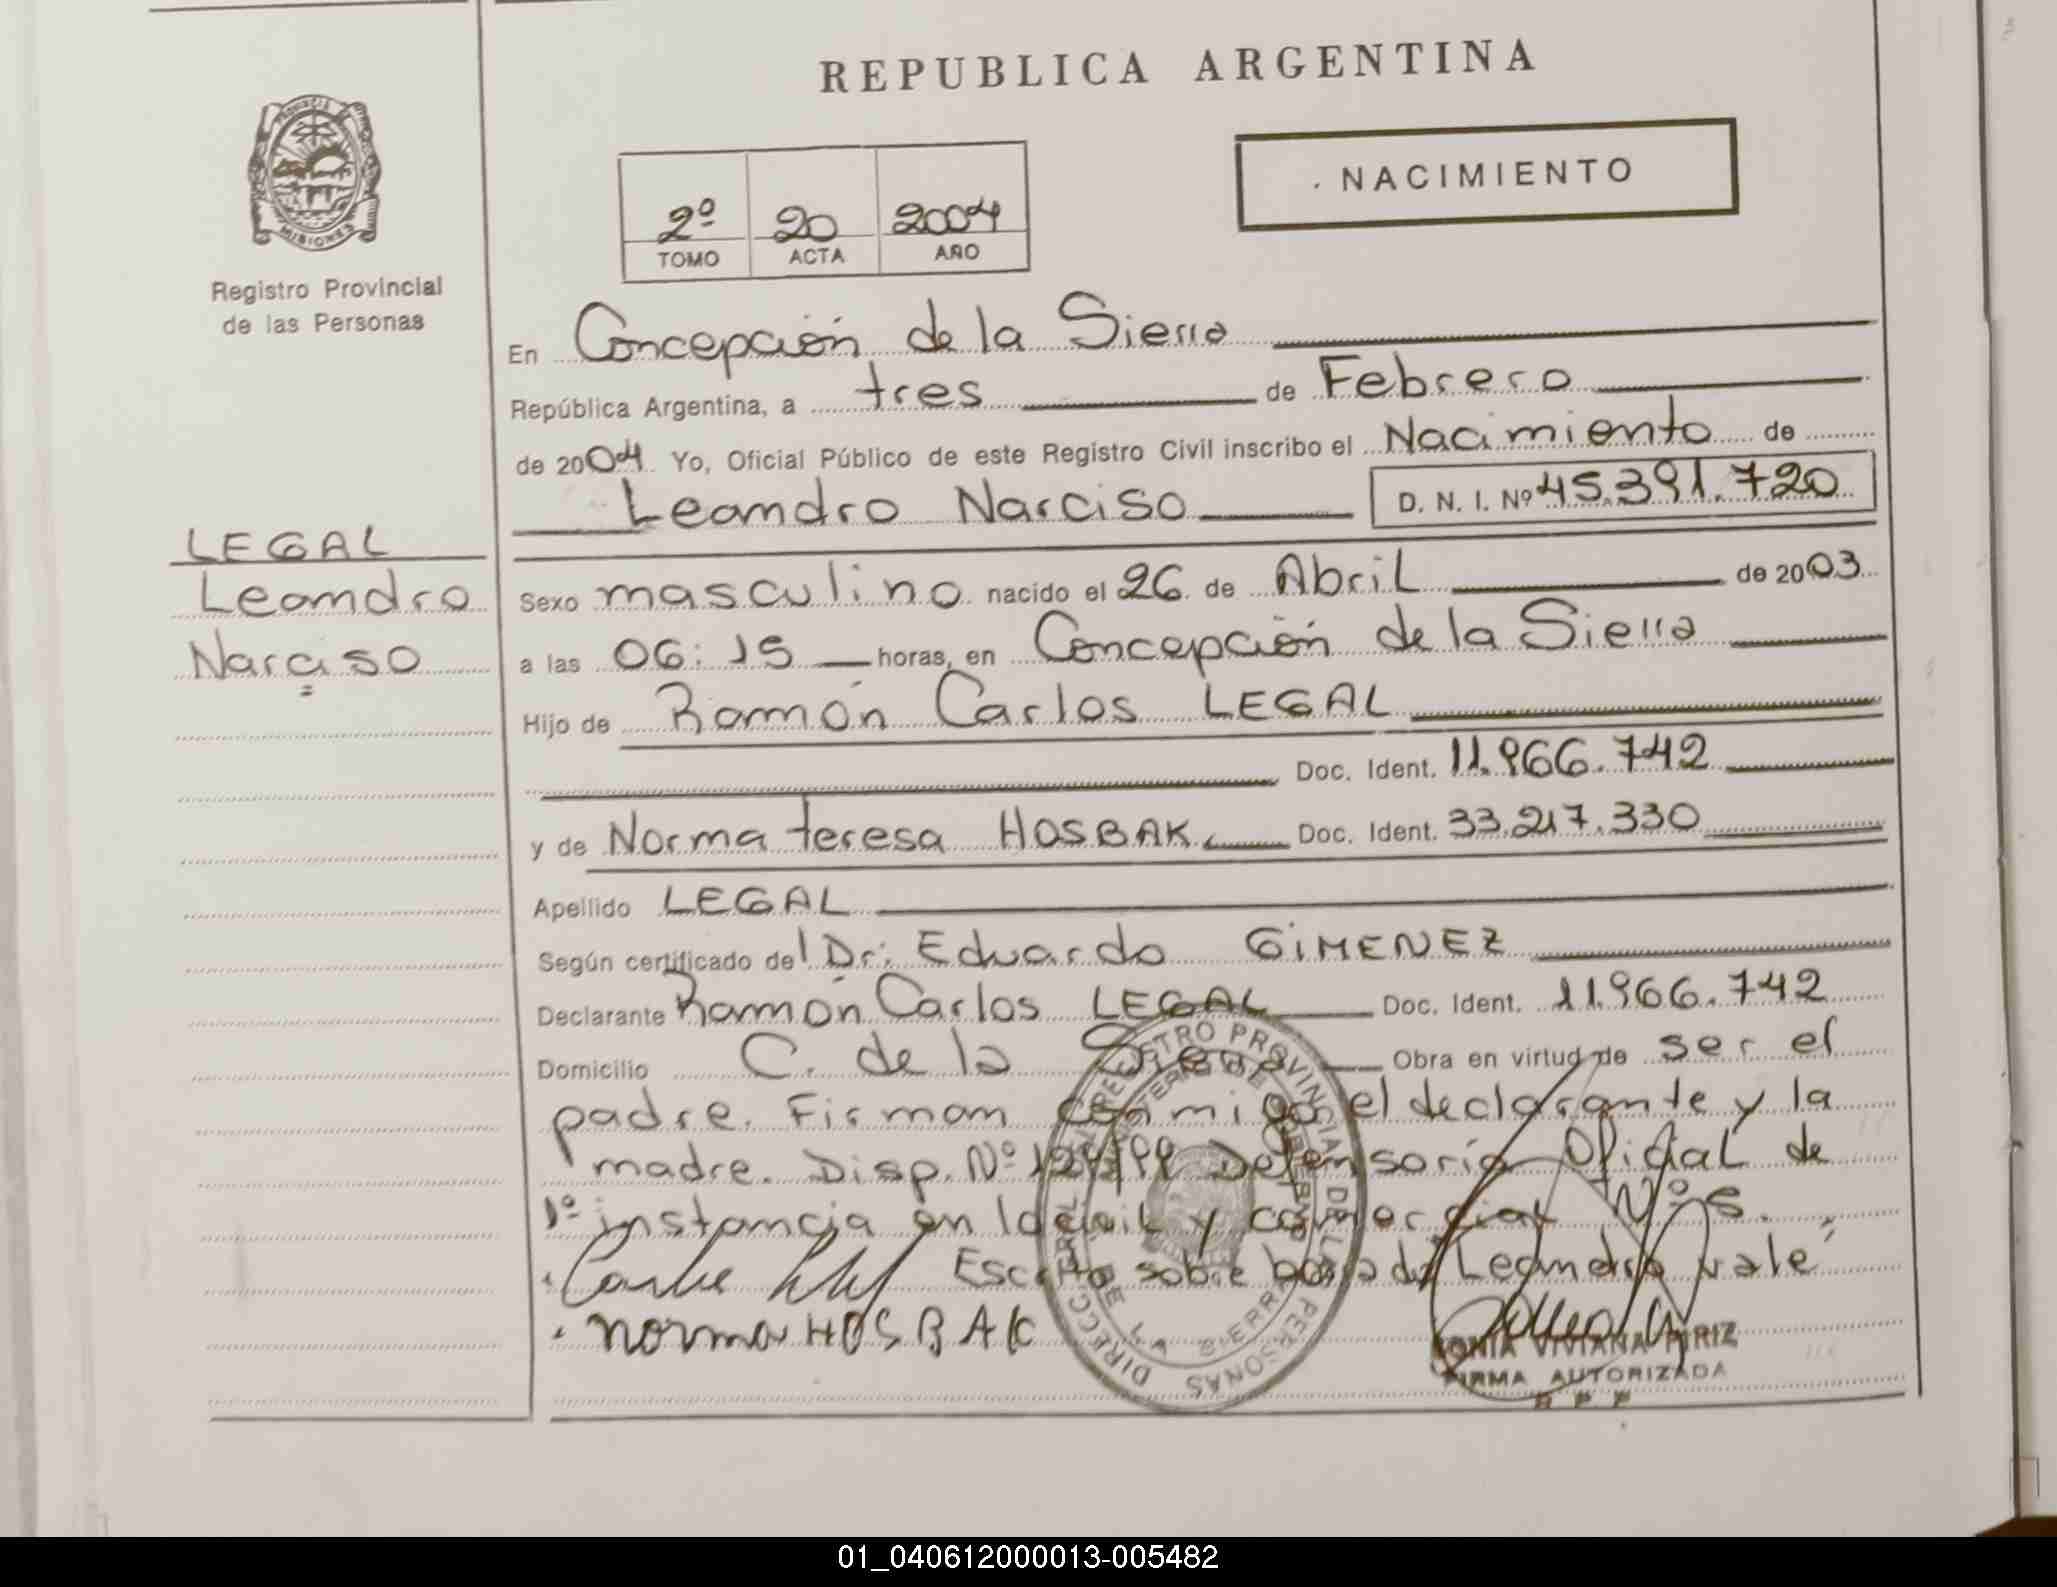 REPUBLICA ARGENTINA
PROVINCIA
MISIONES
Registro Provincial
de las Personas
NACIMIENTO
2º 20 2004
TOMO ACTA AÑO
En Concepción de la Sierra
República Argentina, a tres de Febrero
de 2004 Yo, Oficial Público de este Registro Civil inscribo el Nacimiento de
Leandro Narciso D. N. I. Nº 45.391.720
LEGAL
Leandro
Narciso
Sexo masculino nacido el 26 de Abril de 2003
a las 06:15 horas, en Concepción de la Sierra
Hijo de Ramón Carlos LEGAL
Doc. Ident. 11.966.742
y de Norma teresa HOSBAK Doc. Ident. 33.217.330
Apellido LEGAL
Según certificado del Dr: Eduardo GIMENEZ
Declarante Ramón Carlos LEGAL Doc. Ident. 11.966.742
Domicilio C. de la Sierra Obra en virtud de ser el
padre. Firman conmigo el declarante y la
madre. Disp. Nº Defensoría Oficial de
1º instancia en lo civil y comercial Nº 5.
Escrito sobre borrado "Leandro vale"
norma HOSBAK
DIRECC. GRAL. DEL REGISTRO PROVINCIAL DE LAS PERSONAS
MINISTERIO DE GOBIERNO
DE LA SIERRA
SONIA VIVIANA PIRIZ
FIRMA AUTORIZADA
R P P
01_040612000013-005482